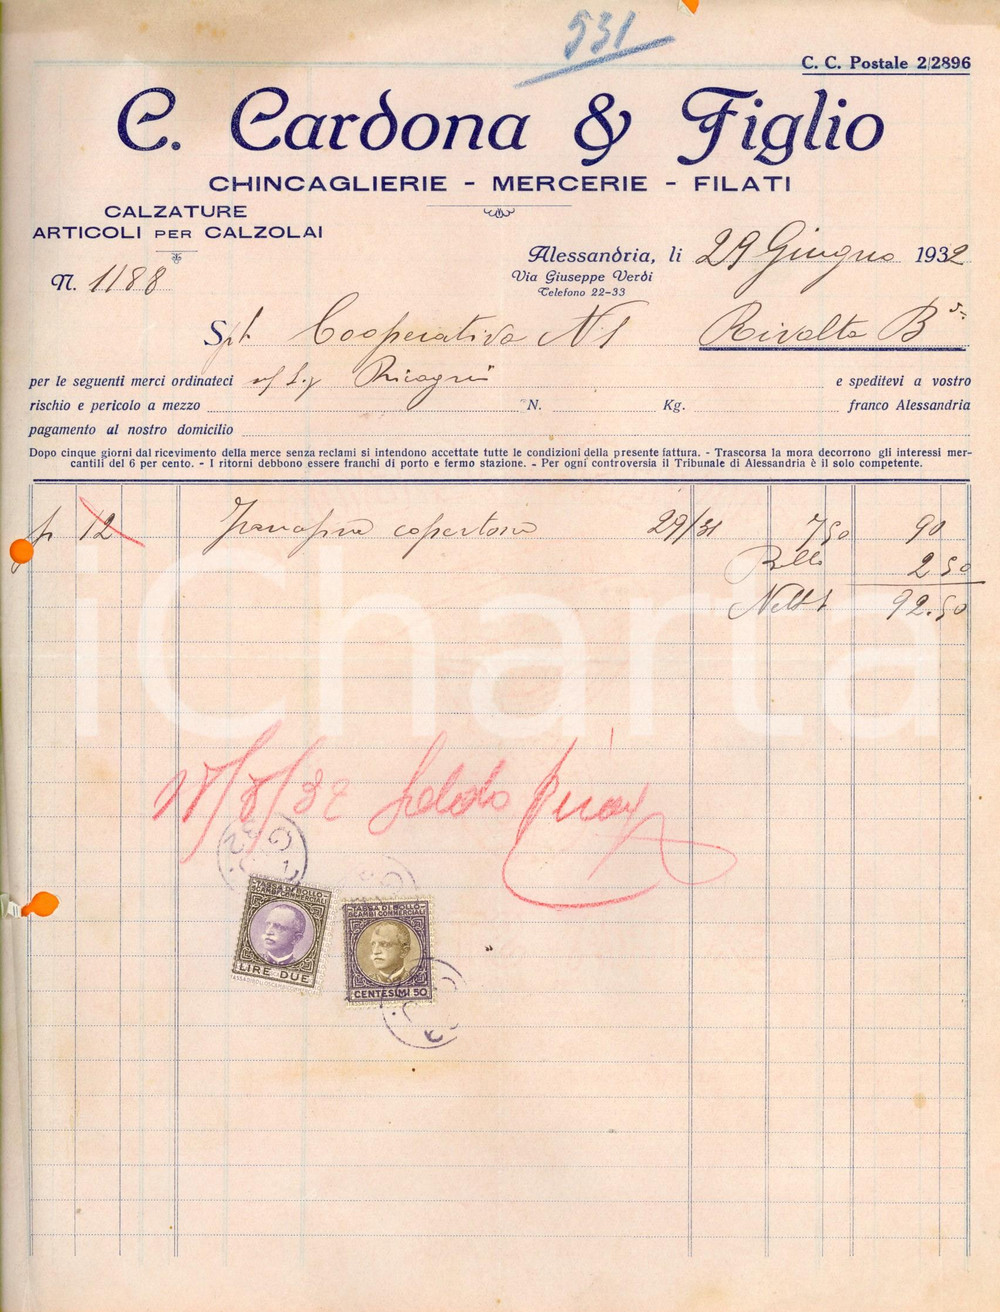 531
C. C. Postale 2/2896
C. Cardona & Figlio
CHINCAGLIERIE - MERCERIE - FILATI
CALZATURE
ARTICOLI PER CALZOLAI
N. 1188
Alessandria, li 29 Giugno 1932
Via Giuseppe Verdi
Telefono 22-33
Spt. Cooperativa N 1 Rivalta B
per le seguenti merci ordinateci e speditevi a vostro
rischio e pericolo a mezzo N. Kg. franco Alessandria
pagamento al nostro domicilio
Dopo cinque giorni dal ricevimento della merce senza reclami si intendono accettate tutte le condizioni della presente fattura. - Trascorsa la mora decorrono gli interessi mer-
cantili del 6 per cento. - I ritorni debbono essere franchi di porto e fermo stazione. - Per ogni controversia il Tribunale di Alessandria è il solo competente.
p 12 copertoni 29/31 7,50 90
Bollo 2 50
Netto 92.50
iCharta
Saldo
TASSA DI BOLLO
SCAMBI COMMERCIALI
LIRE DUE
TASSA DI BOLLO
SCAMBI COMMERCIALI
CENTESIMI 50